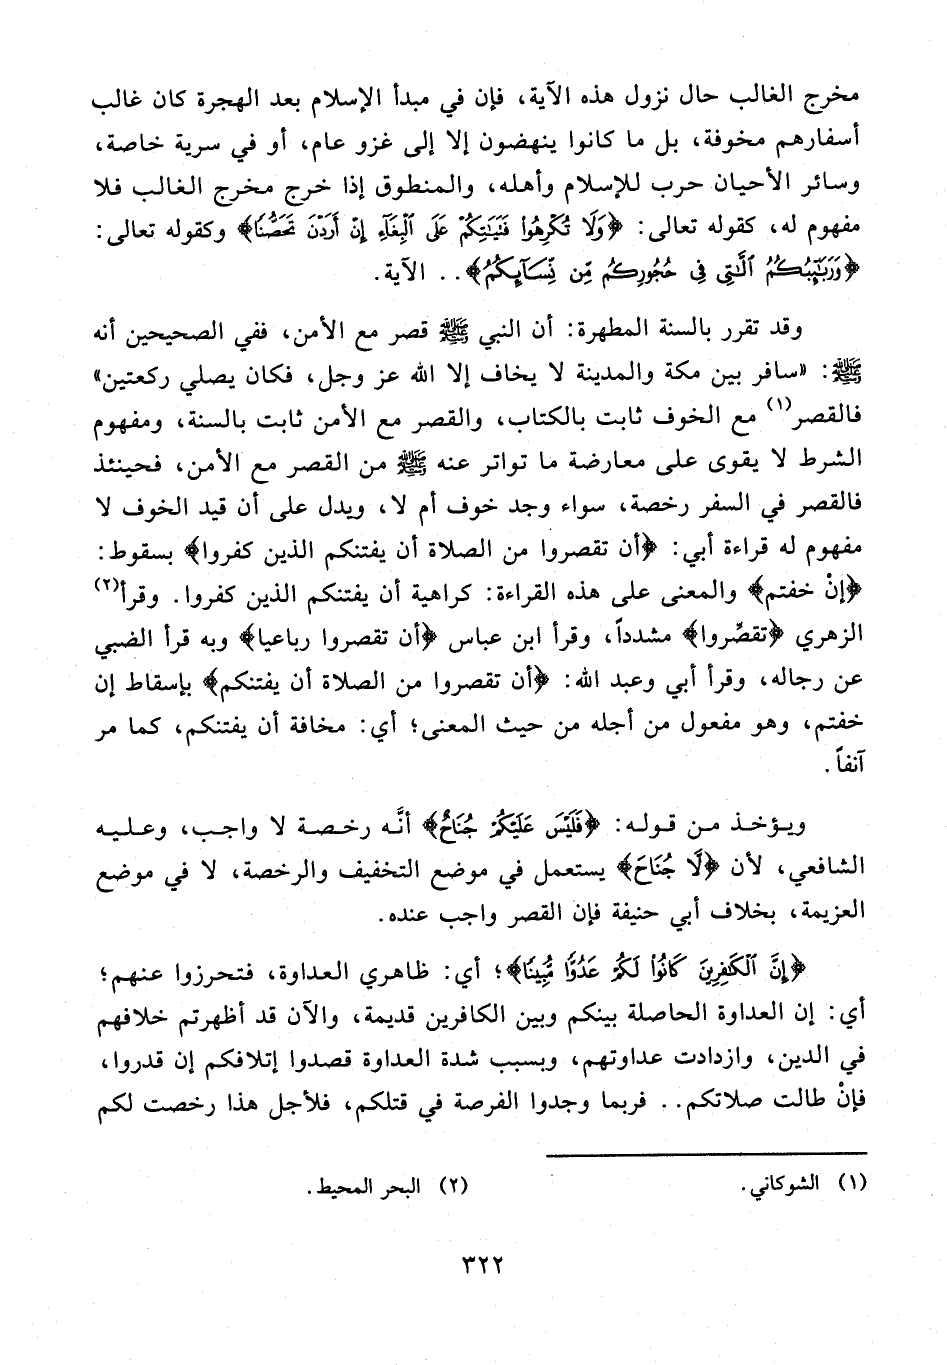 مخرج الغالب حال نزول هذه الآية، فإن في مبدأ الإسلام بعد الهجرة كان غالب
أسفارهم مخوفة، بل ما كانوا ينهضون إلا إلى غزو عام، أو في سرية خاصة،
وسائر الأحيان حرب للإسلام وأهله، والمنطوق إذا خرج مخرج الغالب فلا
مفهوم له، كقوله تعالى: ﴿وَلَا تُكْرِهُوا۟ فَتَيَـٰتِكُمْ عَلَى ٱلْبِغَآءِ إِنْ أَرَدْنَ تَحَصُّنًا﴾ وكقوله تعالى:
﴿وَرَبَـٰٓئِبُكُمُ ٱلَّـٰتِى فِى حُجُورِكُم مِّن نِّسَآئِكُمُ﴾.. الآية.
وقد تقرر بالسنة المطهرة: أن النبي ﷺ قصر مع الأمن، ففي الصحيحين أنه
ﷺ: «سافر بين مكة والمدينة لا يخاف إلا الله عز وجل، فكان يصلي ركعتين»
فالقصر(١) مع الخوف ثابت بالكتاب، والقصر مع الأمن ثابت بالسنة، ومفهوم
الشرط لا يقوى على معارضة ما تواتر عنه ﷺ من القصر مع الأمن، فحينئذ
فالقصر في السفر رخصة، سواء وجد خوف أم لا، ويدل على أن قيد الخوف لا
مفهوم له قراءة أبي: ﴿أن تقصروا من الصلاة أن يفتنكم الذين كفروا﴾ بسقوط:
﴿إنْ خفتم﴾ والمعنى على هذه القراءة: كراهية أن يفتنكم الذين كفروا. وقرأ(٢)
الزهري ﴿تقصِّروا﴾ مشدداً، وقرأ ابن عباس ﴿أن تقصروا رباعيا﴾ وبه قرأ الضبي
عن رجاله، وقرأ أبي وعبد الله: ﴿أن تقصروا من الصلاة أن يفتنكم﴾ بإسقاط إن
خفتم، وهو مفعول من أجله من حيث المعنى؛ أي: مخافة أن يفتنكم، كما مر
آنفاً.
ويؤخذ من قوله: ﴿فَلَيْسَ عَلَيْكُمْ جُنَاحٌ﴾ أنَّه رخصة لا واجب، وعليه
الشافعي، لأن ﴿لَّا جُنَاحَ﴾ يستعمل في موضع التخفيف والرخصة، لا في موضع
العزيمة، بخلاف أبي حنيفة فإن القصر واجب عنده.
﴿إِنَّ ٱلْكَـٰفِرِينَ كَانُوا۟ لَكُمْ عَدُوًّا مُّبِينًا﴾؛ أي: ظاهري العداوة، فتحرزوا عنهم؛
أي: إن العداوة الحاصلة بينكم وبين الكافرين قديمة، والآن قد أظهرتم خلافهم
في الدين، وازدادت عداوتهم، وبسبب شدة العداوة قصدوا إتلافكم إن قدروا،
فإنْ طالت صلاتكم.. فربما وجدوا الفرصة في قتلكم، فلأجل هذا رخصت لكم
(١) الشوكاني. (٢) البحر المحيط.
٣٢٢